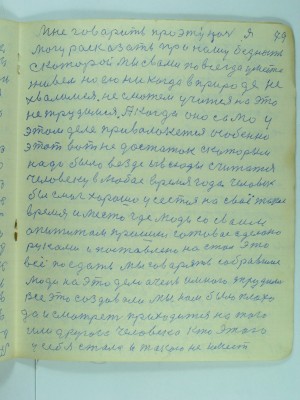 Мне говарить про эту
могу расказать про нашу бедность
с которой мы свами повсегда уместно
живем но ею никогда в природе не
хвалимся, не сможем учится на это
не трудимся, А когды оно само у
этом деле приволожется особенно
этот вот не достаток с которым
надо было везде и всюды считатся
человеку в любое время года человек
бы смог хорошо усестся на своё такое
время и место где люди со своим
апититом пришли готовое сделано
руками и поставлено на стол это
всё поедать мы говарять собралися
люди на это дело очень и много трудилис
все это создавали мы нам было плохо
да и смотреть приходится на того
или другого человека кто этого
у себя стала такую не имеет